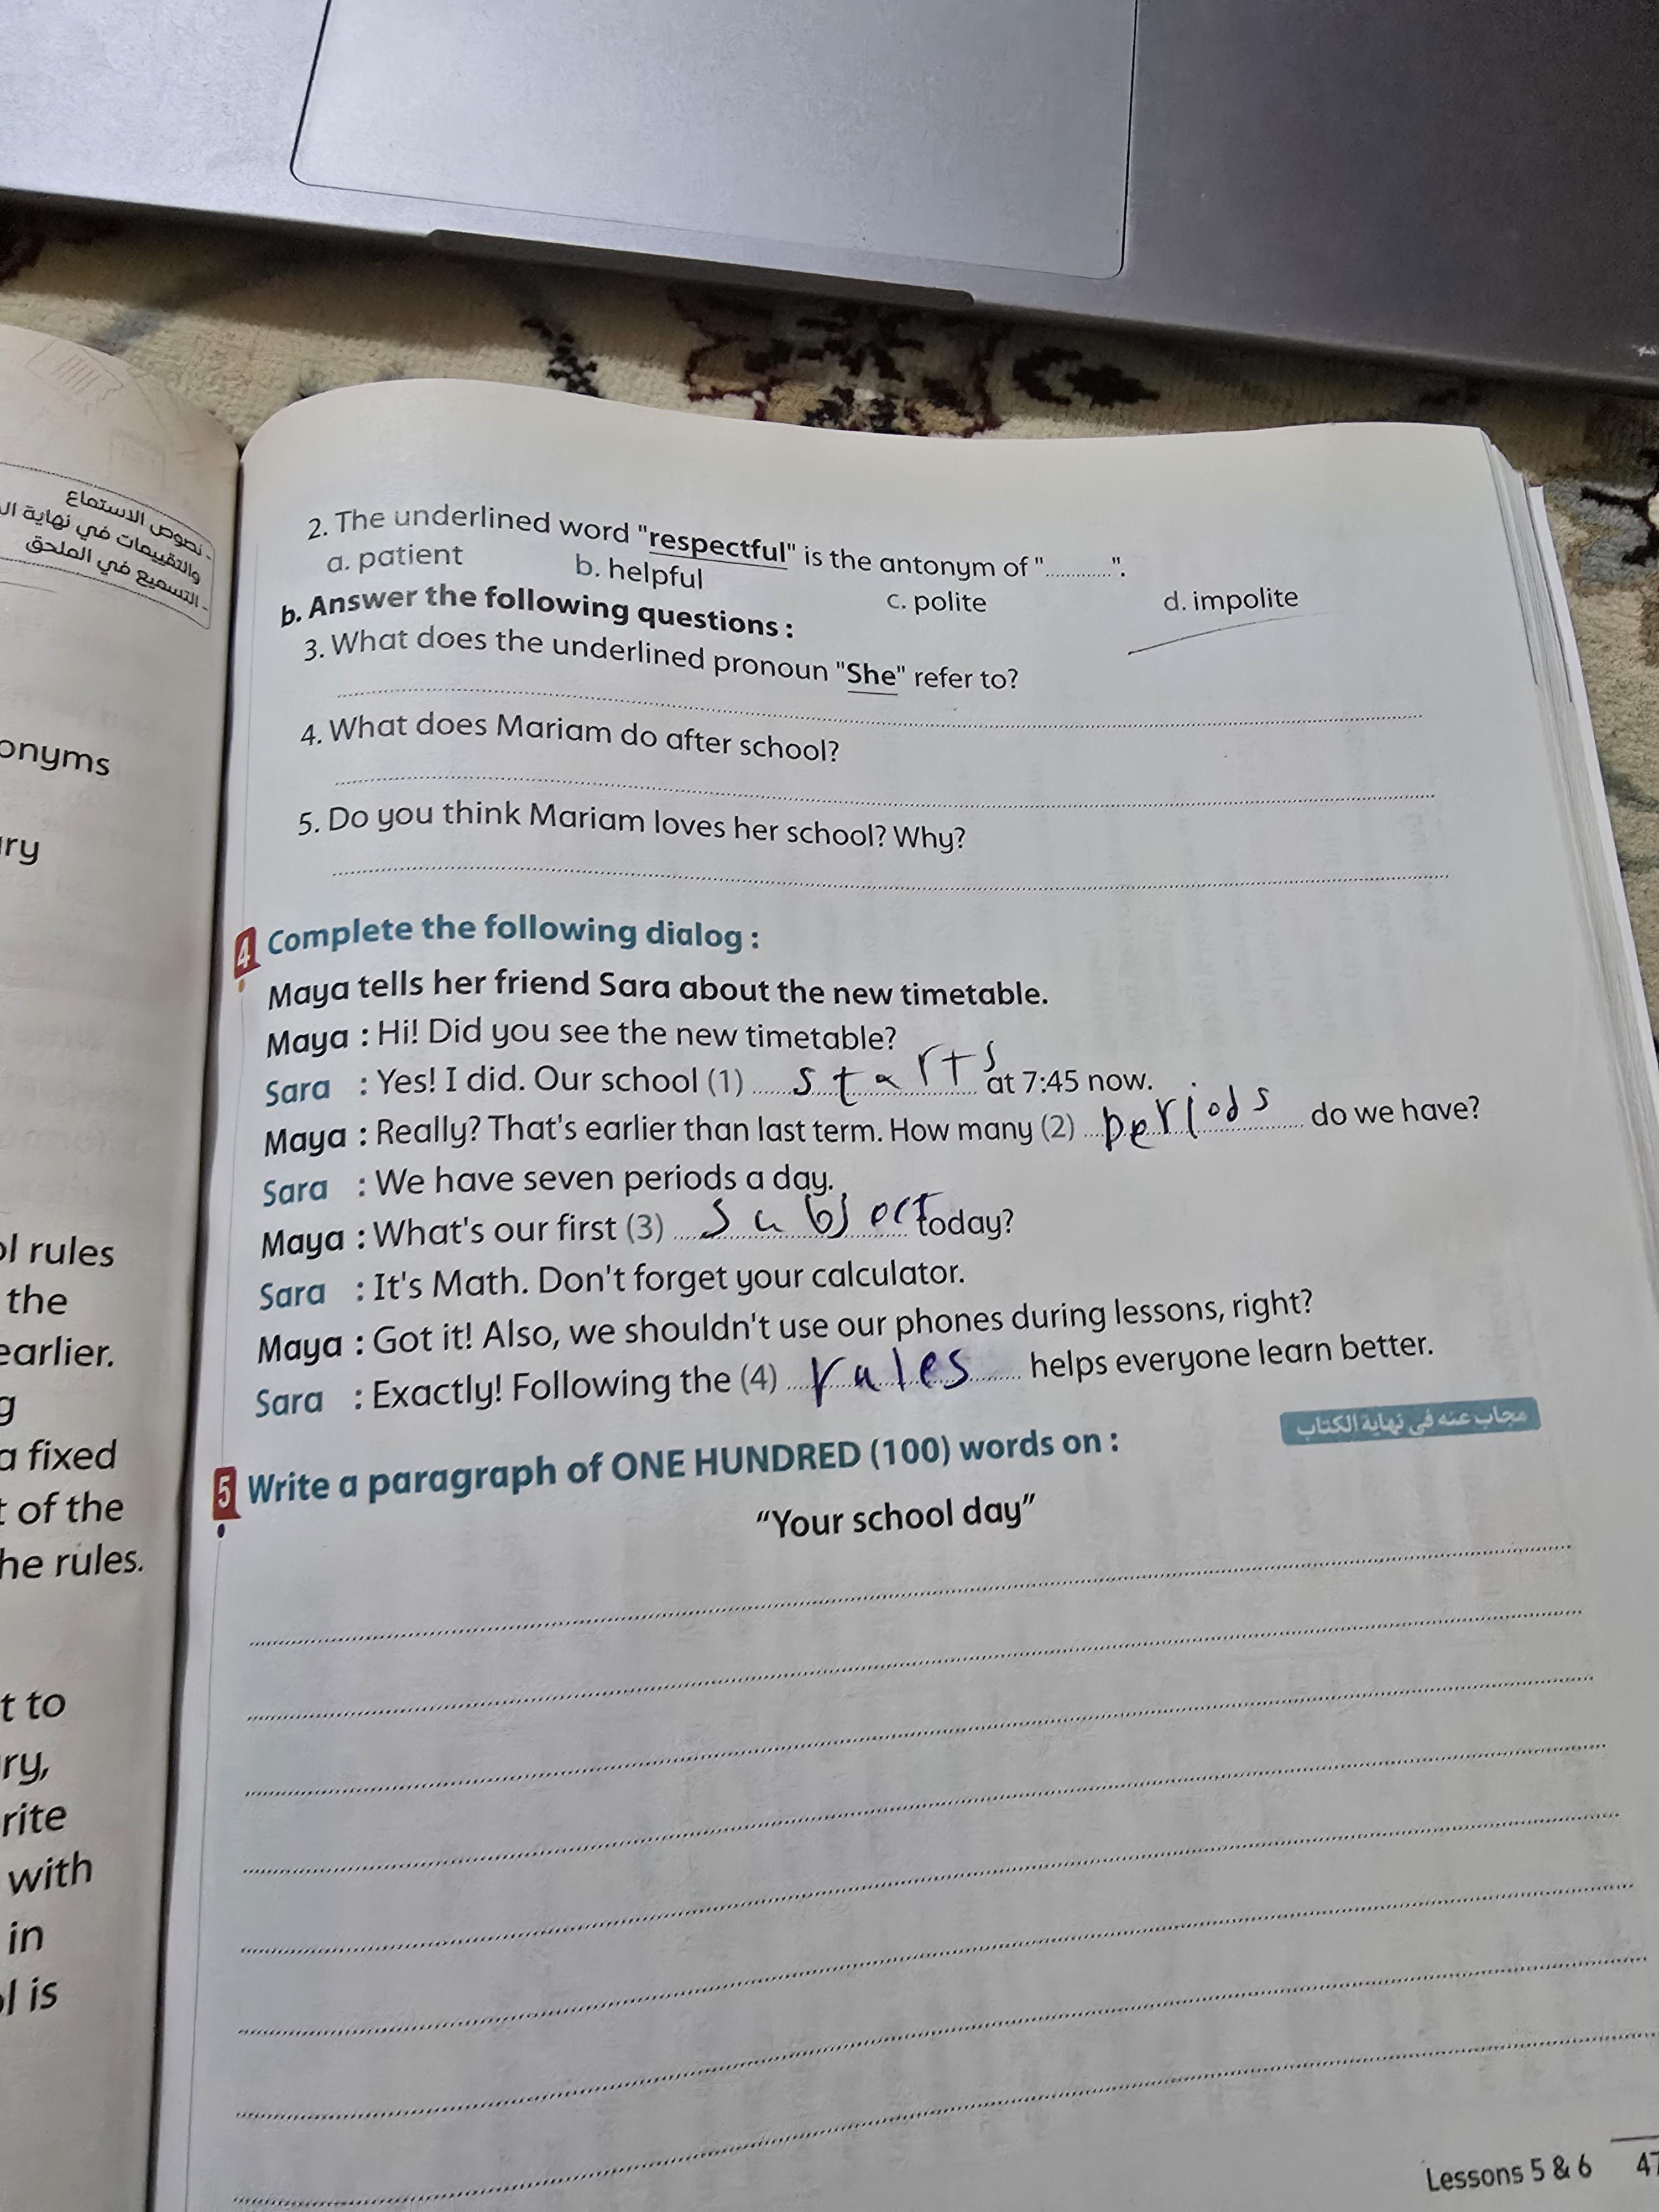 - نصوص الاستماع
والتقييمات في نهاية
- التسميع في الملحق
onyms
ry
ol rules
the
earlier.
g
a fixed
t of the
he rules.
t to
ry,
rite
with
in
ol is
2. The underlined word "respectful" is the antonym of "............".
a. patient b. helpful c. polite d. impolite
b. Answer the following questions :
3. What does the underlined pronoun "She" refer to?
4. What does Mariam do after school?
5. Do you think Mariam loves her school? Why?
4 Complete the following dialog :
Maya tells her friend Sara about the new timetable.
Maya : Hi! Did you see the new timetable?
Sara : Yes! I did. Our school (1) starts at 7:45 now.
Maya : Really? That's earlier than last term. How many (2) periods do we have?
Sara : We have seven periods a day.
Maya : What's our first (3) subject today?
Sara : It's Math. Don't forget your calculator.
Maya : Got it! Also, we shouldn't use our phones during lessons, right?
Sara : Exactly! Following the (4) rules helps everyone learn better.
مجاب عنه في نهاية الكتاب
5 Write a paragraph of ONE HUNDRED (100) words on :
"Your school day"
Lessons 5 & 6 47